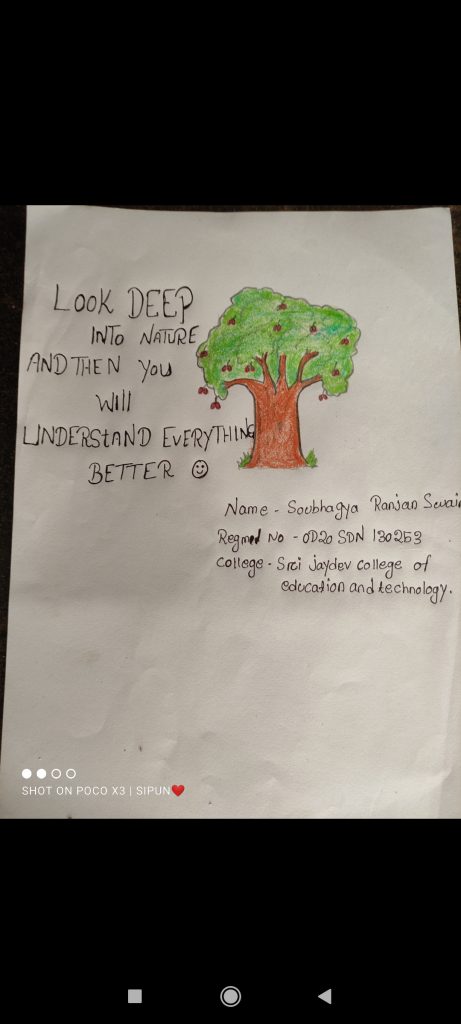 LOOK DEEP
INTO NATURE
AND THEN YOU
Will
UNDERSTAND EVERYTHING
BETTER ☺
Name - Soubhagya Ranjan Swain
Regmd No - OD20 SDN 130253
College - Sri Jaydev college of
education and technology.
SHOT ON POCO X3 | SIPUN❤️